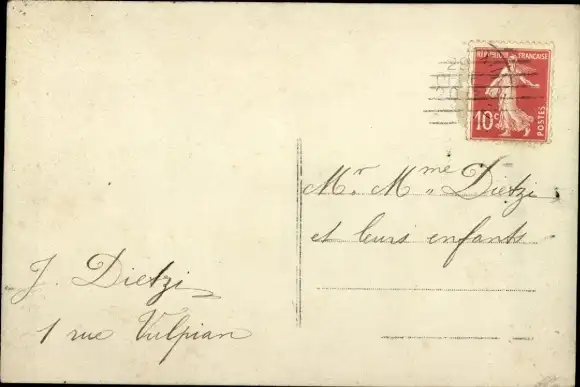 REPUBLIQUE FRANÇAISE
10c
POSTES
Mr. Mme Dietzi
et leurs enfants
J. Dietzi
1 rue Vulpian